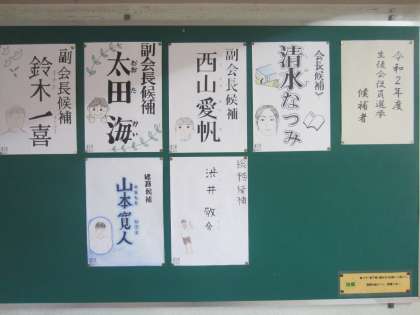 令和2年度
生徒会役員選挙
候補者
会長候補
清水なつみ
副会長候補
西山愛帆
副会長候補
太田海
おおた
かい
副会長候補
鈴木一喜
総務候補
総務候補
山本寛人